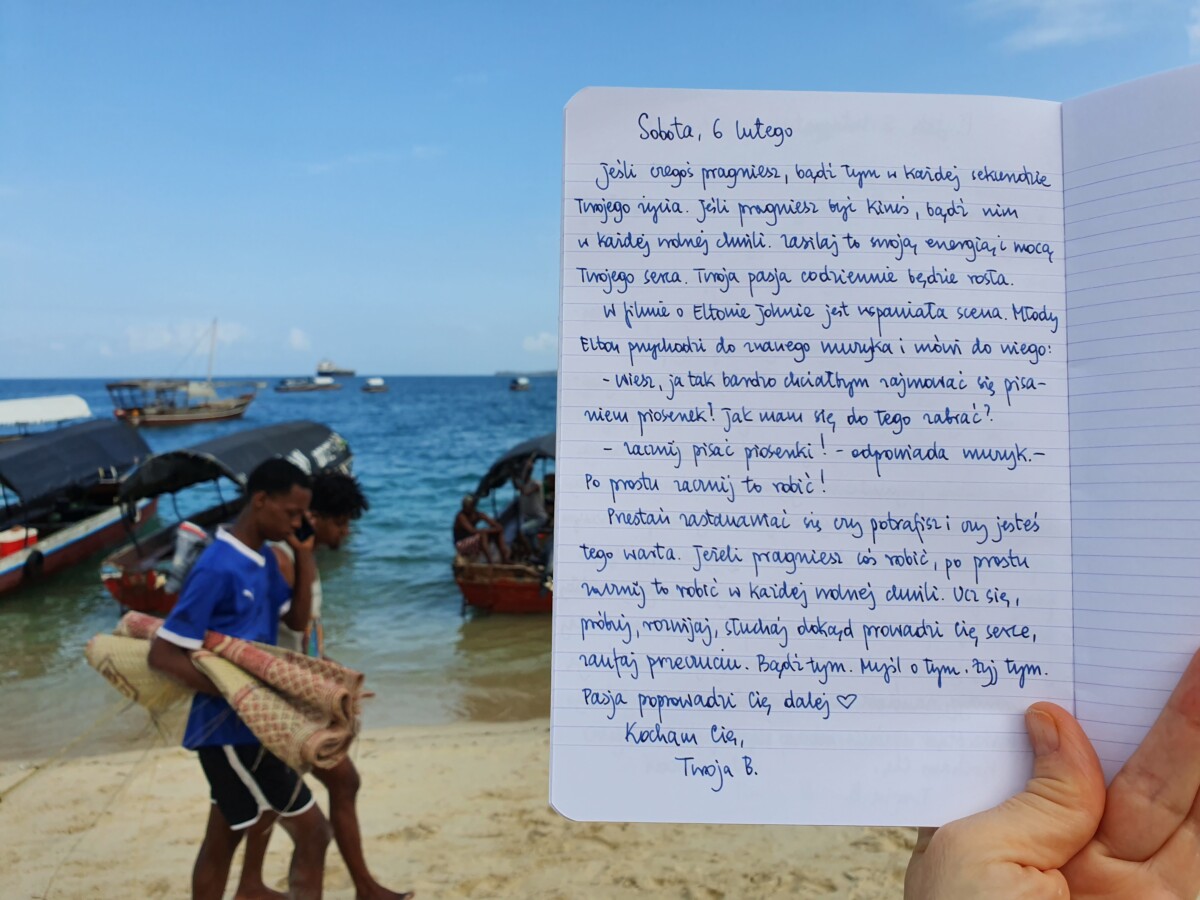 Sobota, 6 lutego
Jeśli czegoś pragniesz, bądź tym w każdej sekundzie
Twojego życia. Jeśli pragniesz być kimś, bądź nim
w każdej wolnej chwili. Zasilaj to swoją energią i mocą
Twojego serca. Twoja pasja codziennie będzie rosła.
W filmie o Eltonie Johnie jest wspaniała scena. Młody
Elton przychodzi do znanego muzyka i mówi do niego:
- Wiesz, ja tak bardzo chciałbym zajmować się pisa-
niem piosenek! Jak mam się do tego zabrać?
- Zacznij pisać piosenki! - odpowiada muzyk. -
Po prostu zacznij to robić!
Przestań zastanawiać się czy potrafisz i czy jesteś
tego warta. Jeżeli pragniesz coś robić, po prostu
zacznij to robić w każdej wolnej chwili. Ucz się,
próbuj, rozwijaj, słuchaj dokąd prowadzi Cię serce,
zaufaj przeczuciu. Bądź tym. Myśl o tym. Żyj tym.
Pasja poprowadzi Cię dalej ♡
Kocham Cię,
Twoja B.